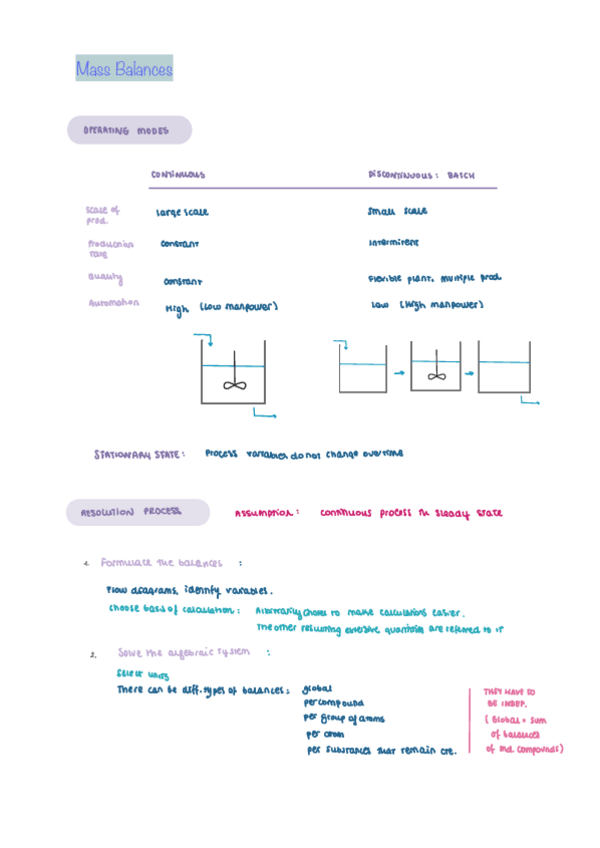 Mass Balances
OPERATING MODES
CONTINUOUS DISCONTINUOUS: BATCH
Scale of prod. Large scale Small scale
Production rate constant Intermitent
Quality constant Flexible plant, multiple prod.
Automation High (Low manpower) Low (High manpower)
STATIONARY STATE: Process variables do not change overtime
RESOLUTION PROCESS Assumption: continuous process in steady state
1. Formulate the balances :
Flow diagrams, identify variables.
Choose basis of calculation: Arbitrarily chosen to make calculations easier.
The other resulting extensive quantities are referred to it
2. Solve the algebraic system :
Select units
There can be diff. types of balances: global
per compound
per group of atoms
per atom
per substances that remain cte.
THEY HAVE TO
BE INDEP.
(Global = sum
of balances
of ind. compounds)